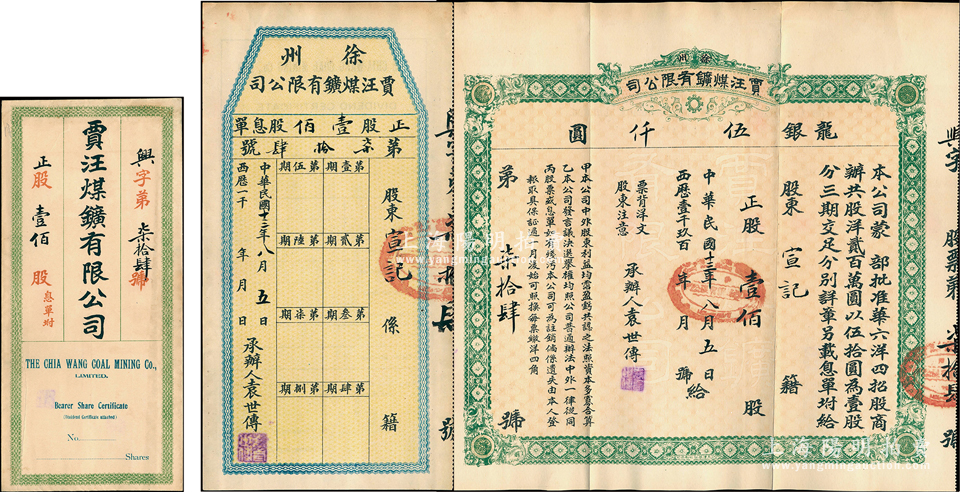 興字第柒拾肆號
賈汪煤鑛有限公司
正股壹佰股
息單坿
THE CHIA WANG COAL MINING Co.,
LIMITED.
Bearer Share Certificate
(Dividend Certificate attached)
No.
Shares
州徐
司公限有鑛煤汪賈
單息股佰壹股正
號肆拾柒第
期伍第 期壹第
期陸第 期貳第
期柒第 期叁第
期捌第 期肆第
股東宣記 係 籍
中華民國十三年八月五日
西歷一千 年 月 日
承辦人袁世傳
州徐
司公限有鑛煤汪賈
圓仟伍銀龍
本公司蒙 部批准華六洋四招股商
辦共股洋貳百萬圓以伍拾圓為壹股
分三期交足分別詳章另載息單坿給
股東 宣記 籍
正股壹佰股
中華民國十三年八月五日給
西歷壹千玖百 年 月 號
承辦人袁世傳
票背洋文
股東注意
甲本公司中外股東利益均需盈虧共認之法照資本多寡合算
乙本公司發言議決選舉權均照公司普通辦法中外一律從同
丙股票或息單如有殘污本公司可為註銷倘係遺失由本人登
報取具保証過 月後始可照換每票繳洋四角
第柒拾肆號
股票第柒拾肆號
上海陽明拍卖
www.yangmingauction.com
上海陽明拍卖
www.yangmingauction.com